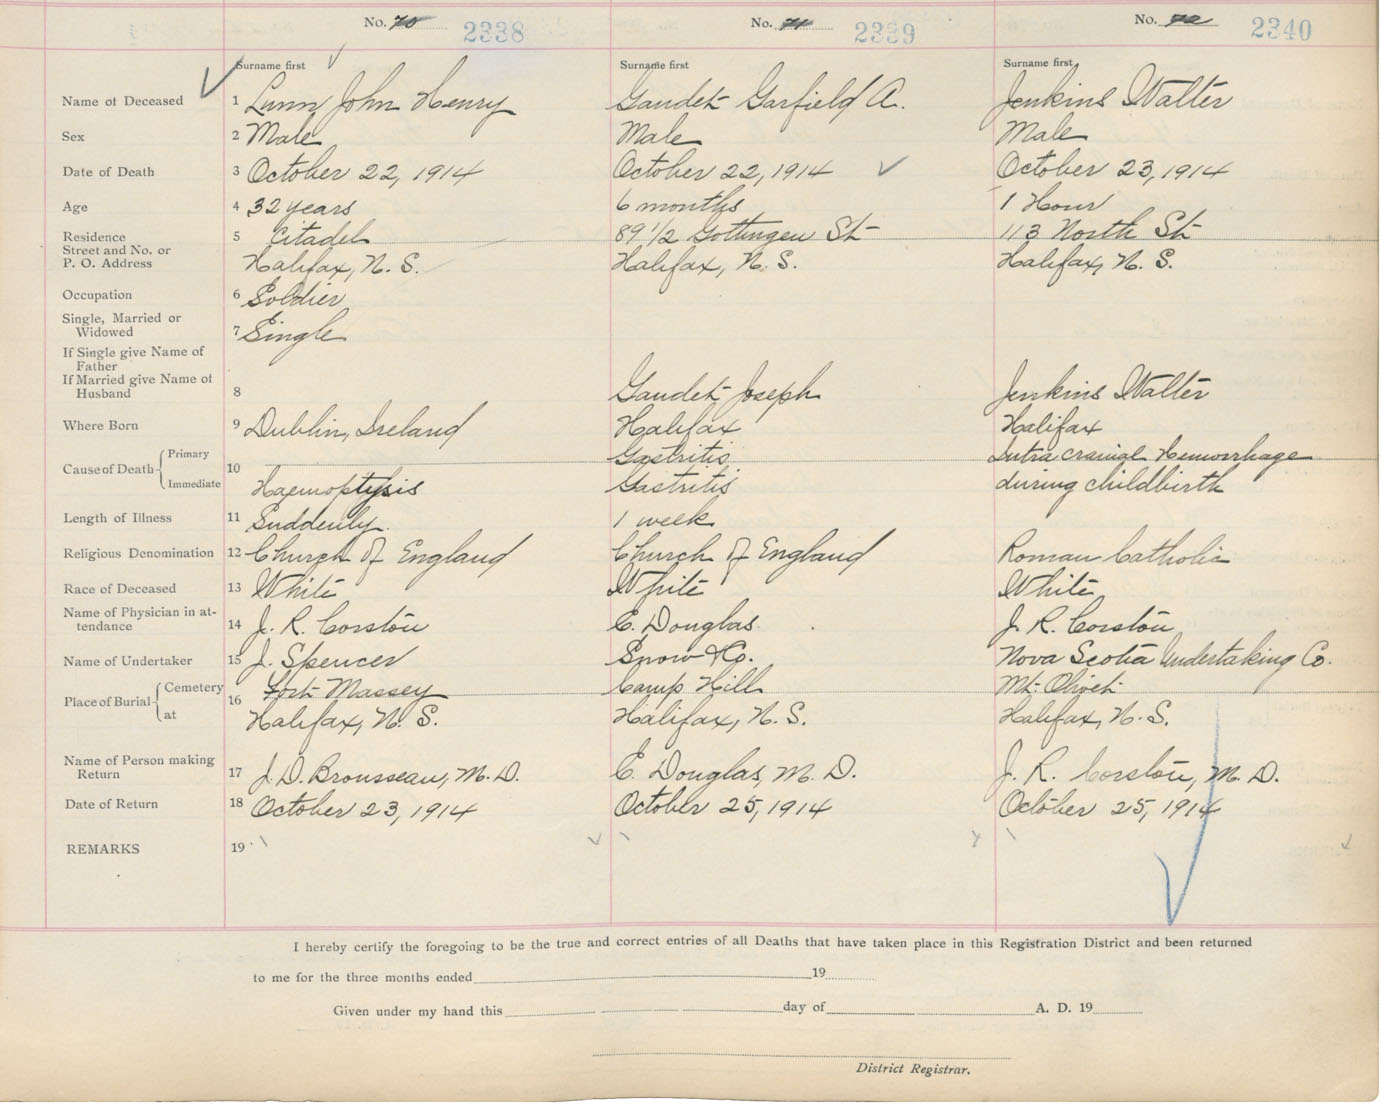 No. 70 2338 No. 71 2339 No. 72 2340
Surname first Surname first Surname first
Name of Deceased 1 Lunn John Henry Gaudet Garfield A. Jenkins Walter
Sex 2 Male Male Male
Date of Death 3 October 22, 1914 October 22, 1914 October 23, 1914
Age 4 32 years 6 months 1 Hour
Residence 5 Citadel 89 1/2 Gottingen St 113 North St
Street and No. or
P. O. Address Halifax, N. S. Halifax, N. S. Halifax, N. S.
Occupation 6 Soldier
Single, Married or
Widowed 7 Single
If Single give Name of
Father
If Married give Name of
Husband 8 Gaudet Joseph Jenkins Walter
Where Born 9 Dublin, Ireland Halifax Halifax
Cause of Death Primary 10 Gastritis Intra cranial Hemorrhage
Immediate Haemoptysis Gastritis during childbirth
Length of Illness 11 Suddenly. 1 week
Religious Denomination 12 Church of England Church of England Roman Catholic
Race of Deceased 13 White White White
Name of Physician in at-
tendance 14 J. R. Corston E. Douglas J. R. Corston
Name of Undertaker 15 J. Spencer Snow & Co. Nova Scotia Undertaking Co.
Place of Burial Cemetery 16 Fort Massey Camp Hill Mt. Olivet
at Halifax, N. S. Halifax, N. S. Halifax, N. S.
Name of Person making
Return 17 J. D. Brousseau, M. D. E. Douglas, M. D. J. R. Corston, M. D.
Date of Return 18 October 23, 1914 October 25, 1914 October 25, 1914
REMARKS 19
I hereby certify the foregoing to be the true and correct entries of all Deaths that have taken place in this Registration District and been returned
to me for the three months ended 19
Given under my hand this day of A. D. 19
District Registrar.